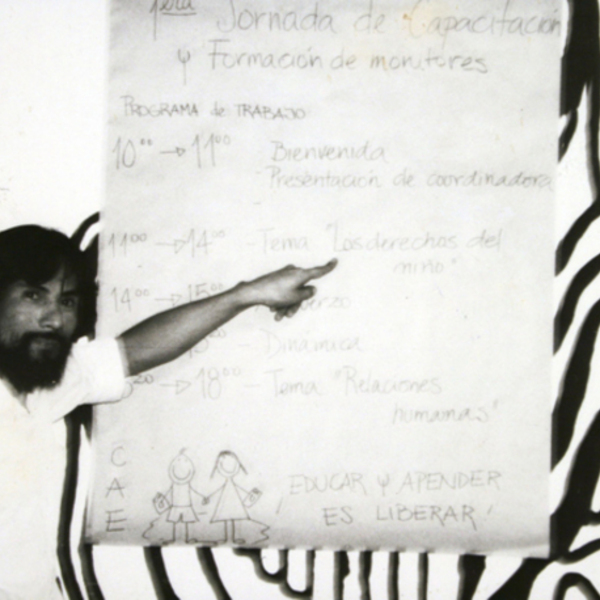 1era Jornada de Capacitación
y Formación de monitores
PROGRAMA de TRABAJO
10°° → 11°° Bienvenida
- Presentación de coordinadora
11°° → 14°° - Tema "Los derechos del
niño"
14°° → 15°°
- Dinámica
→ 18°° - Tema "Relaciones
humanas"
C
A
E
¡EDUCAR Y APENDER
ES LIBERAR!